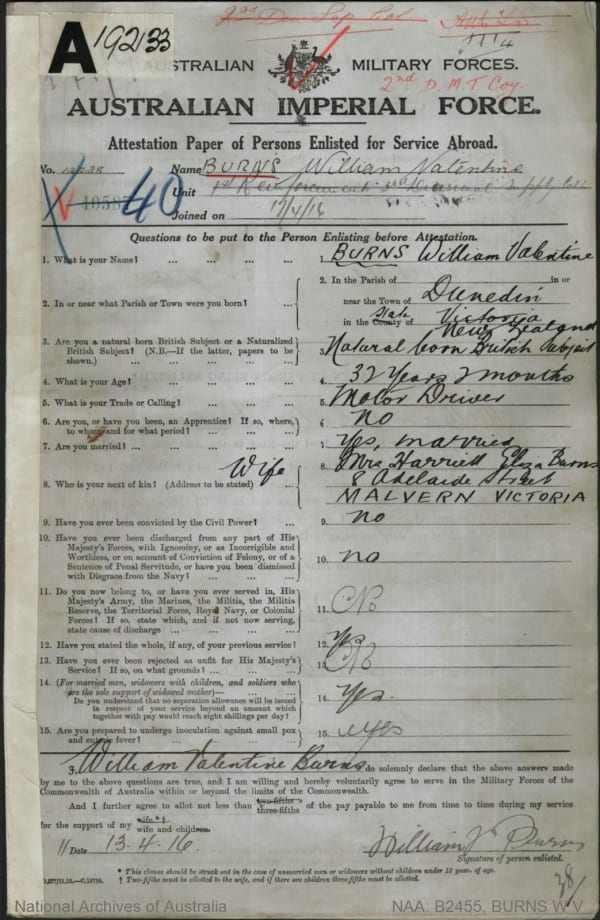 A 19233
AUSTRALIAN MILITARY FORCES.
2nd D. M.T. Coy.
AUSTRALIAN IMPERIAL FORCE.
Attestation Paper of Persons Enlisted for Service Abroad.
No. Name BURNS William Valentine
Unit 1st Reinforcements 3rd Divisional Supply Col
40
Joined on 17/4/16
Questions to be put to the Person Enlisting before Attestation.
1. What is your Name? ... ... ... ... 1. BURNS William Valentine
2. In or near what Parish or Town were you born? ... 2. In the Parish of in or
near the Town of Dunedin
in the County of State Victoria
New Zealand
3. Are you a natural born British Subject or a Naturalized British Subject? (N.B.—If the latter, papers to be shown.) ... ... 3. Natural born British Subject
4. What is your Age? ... ... ... ... 4. 32 Years 2 months
5. What is your Trade or Calling? ... ... ... 5. Motor Driver
6. Are you, or have you been, an Apprentice? If so, where, to whom, and for what period? ... ... 6. no
7. Are you married? ... ... ... ... 7. Yes, married
8. Who is your next of kin? (Address to be stated) ... Wife 8. Mrs Harriett Eliza Burns
8 Adelaide Street
MALVERN VICTORIA
9. Have you ever been convicted by the Civil Power? ... 9. no
10. Have you ever been discharged from any part of His
Majesty's Forces, with Ignominy, or as Incorrigible and
Worthless, or on account of Conviction of Felony, or of a
Sentence of Penal Servitude, or have you been dismissed
with Disgrace from the Navy? ... ... 10. no
11. Do you now belong to, or have you ever served in, His
Majesty's Army, the Marines, the Militia, the Militia
Reserve, the Territorial Force, Royal Navy, or Colonial
Forces? If so, state which, and if not now serving,
state cause of discharge ... ... ... 11. No
12. Have you stated the whole, if any, of your previous service? 12. yes
13. Have you ever been rejected as unfit for His Majesty's
Service? If so, on what grounds? ... ... 13. No
14. (For married men, widowers with children, and soldiers who
are the sole support of widowed mother)— ... ...
Do you understand that no separation allowance will be issued
in respect of your service beyond an amount which
together with pay would reach eight shillings per day? 14. Yes.
15. Are you prepared to undergo inoculation against small pox
and enteric fever? ... ... ... 15. Yes
3. William Valentine Burns do solemnly declare that the above answers made
by me to the above questions are true, and I am willing and hereby voluntarily agree to serve in the Military Forces of the
Commonwealth of Australia within or beyond the limits of the Commonwealth.
And I further agree to allot not less than two-fifths three-fifths of the pay payable to me from time to time during my service
for the support of my wife*† wife and children.
Date 13.4.16. William V Burns
Signature of person enlisted.
* This clause should be struck out in the case of unmarried men or widowers without children under 18 years of age.
† Two-fifths must be allotted to the wife, and if there are children three-fifths must be allotted.
38
National Archives of Australia NAA: B2455, BURNS W V